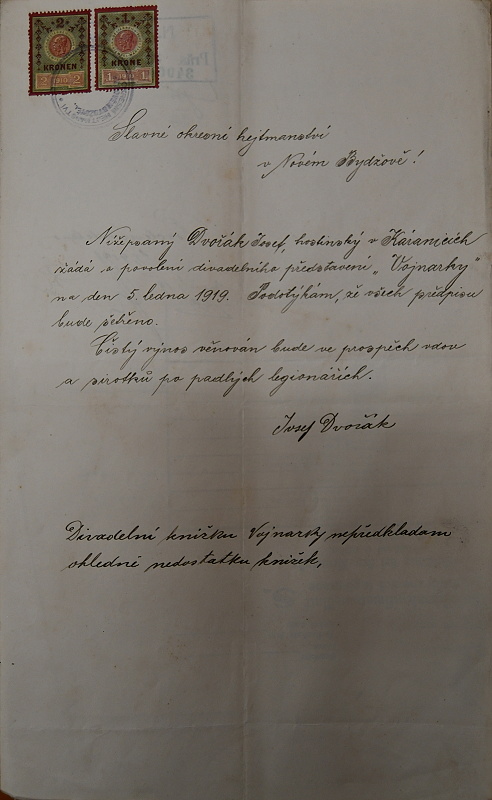 2 1
KRONEN KRONE
2 1916 2 1 1916 1
Slavné okresní hejtmanství
v Novém Bydžově!
Nížepsaný Dvořák Josef, hostinský v Káranicích
žádá o povolení divadelního představení „Vojnarky"
na den 5. ledna 1919. Podotýkám, že všech předpisu
bude šetřeno.
Čistý výnos věnován bude ve prospěch vdov
a sirotků po padlých legionářích.
Josef Dvořák
Divadelní knižku Vojnarky nepředkladam
ohledně nedostatku knižek,